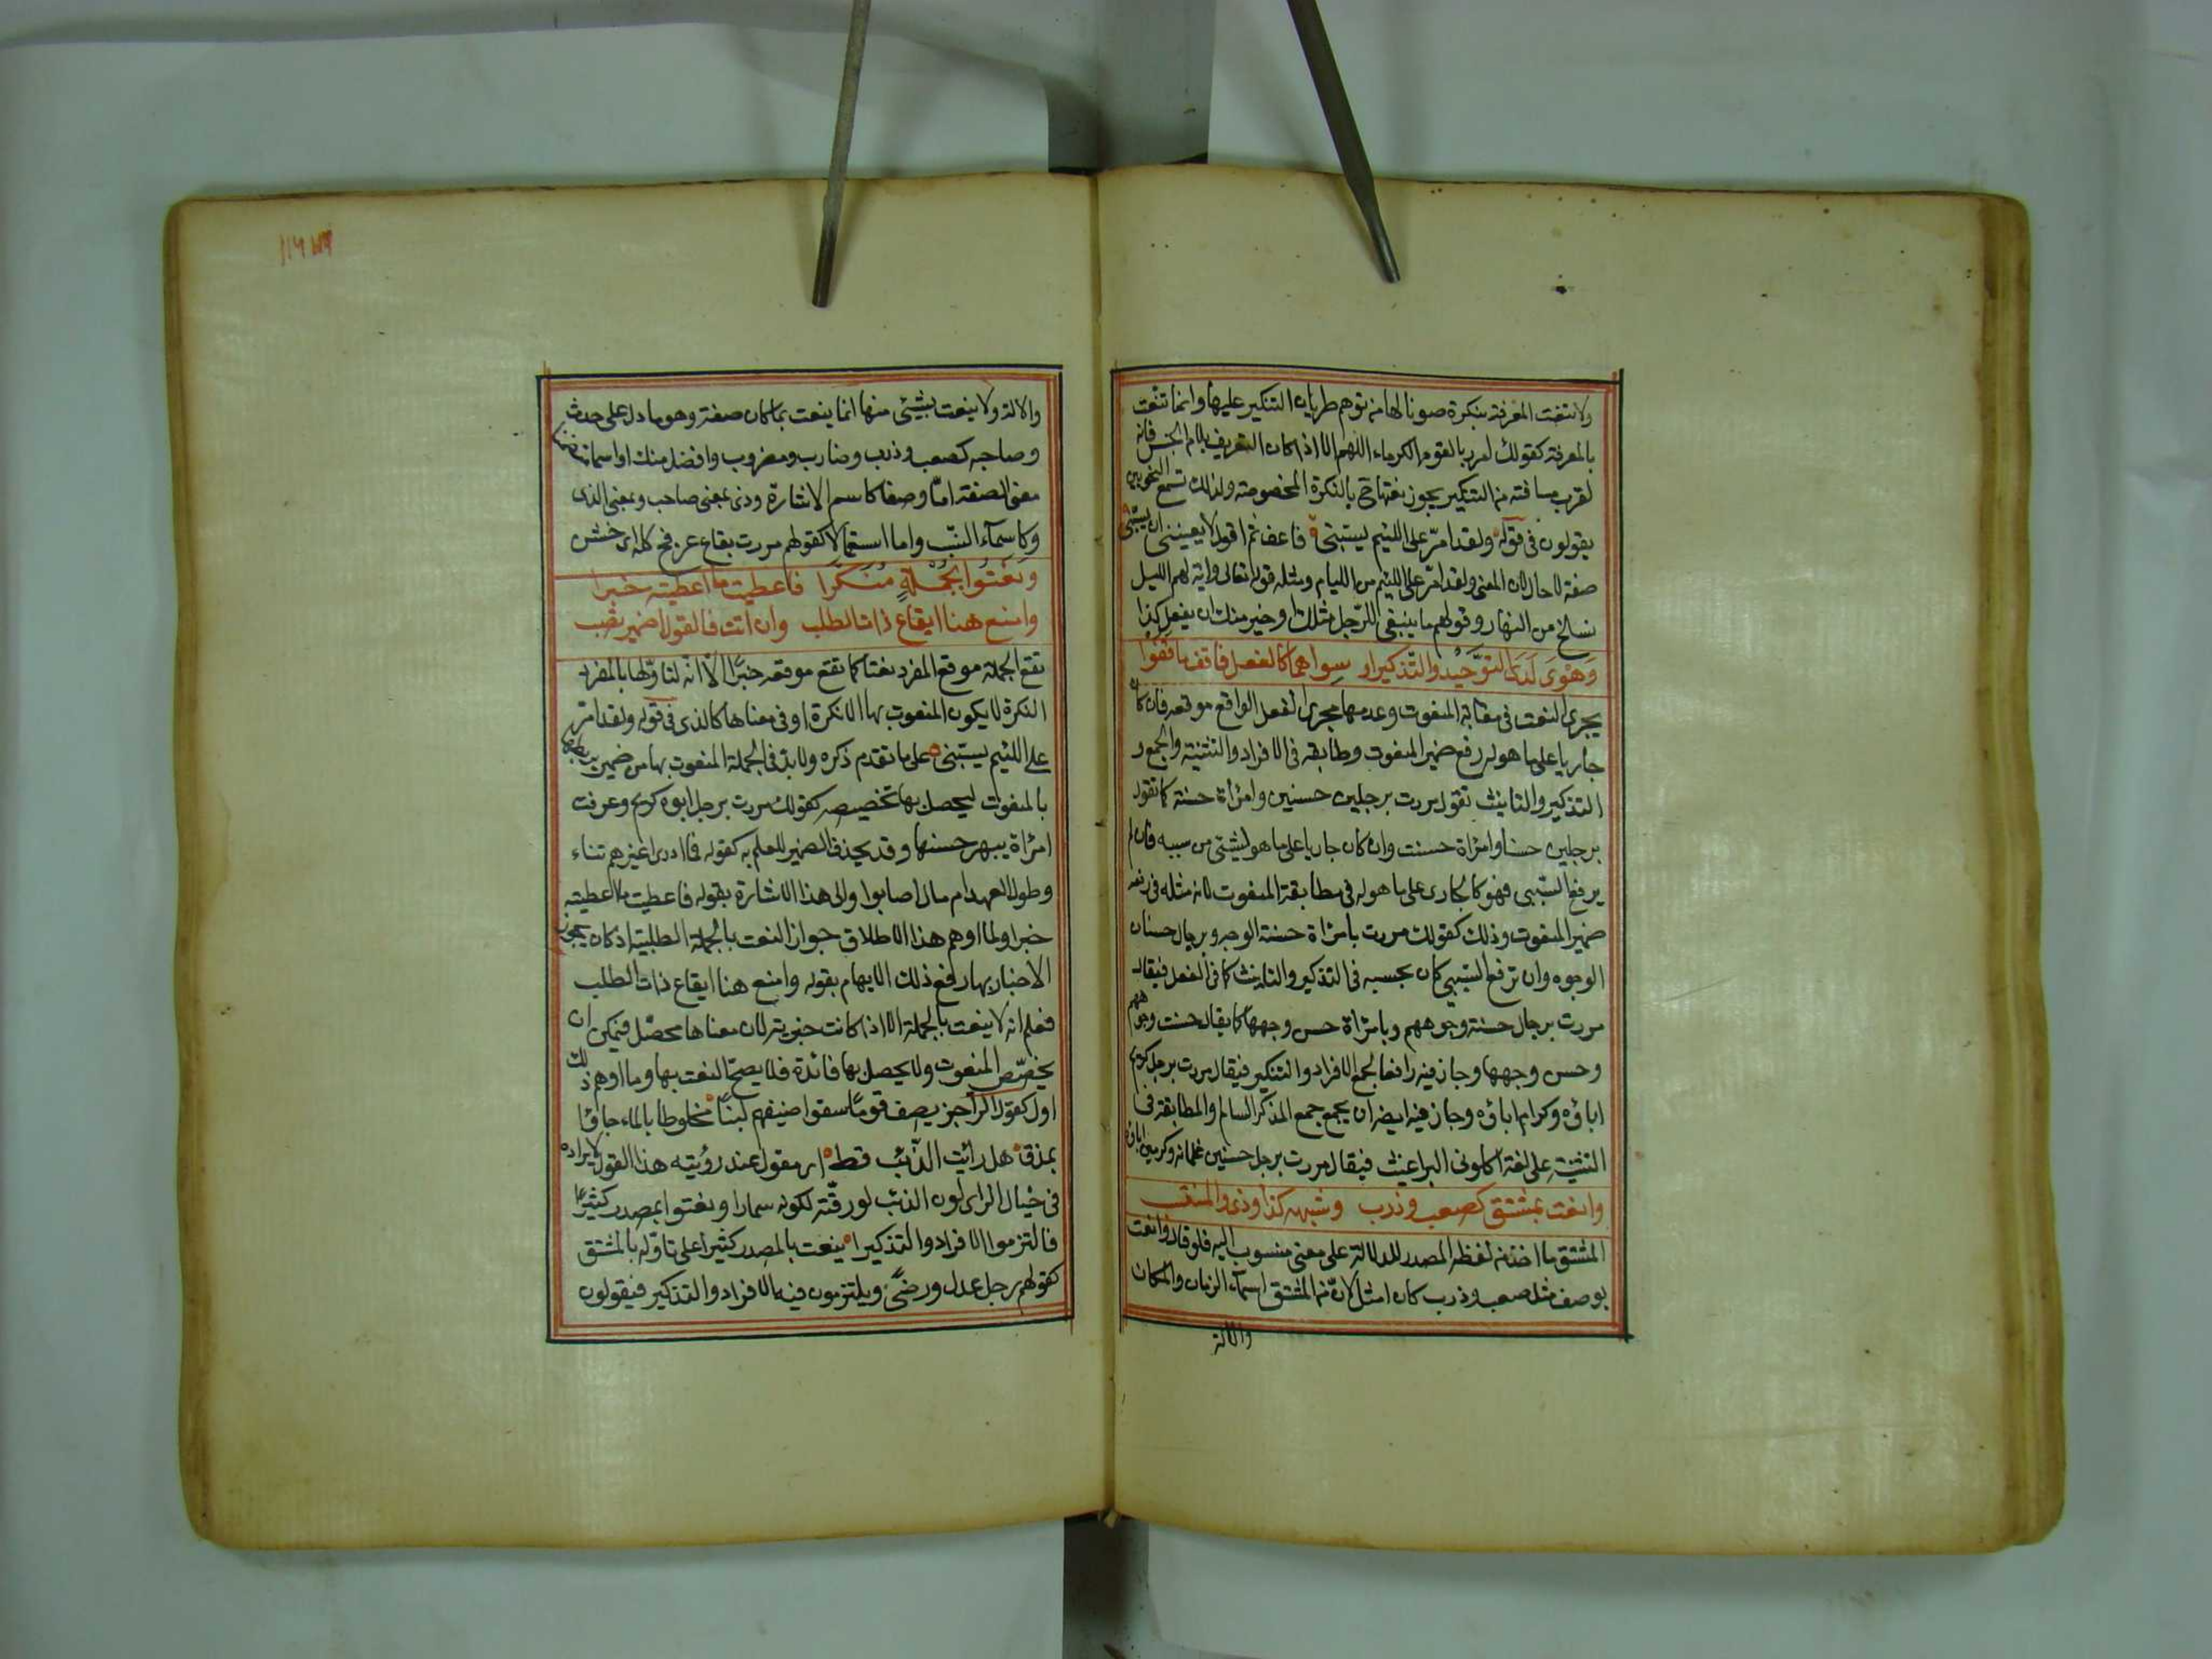 ولا تنعت المعرفة بنكرة صونا لها من توهم طريان التنكير عليها وانما تنعت
بالمعرفة كقولك امرر بالقوم الكرماء اللهم الا اذا كان التعريف بلام الجنس فانه
لقرب مسافته من التنكير يجوز نعتها ح بالنكرة المخصوصة ولذلك تسمع النحويين
يقولون في قوله ولقد امرّ على اللئيم يسبني فاعف ثم اقول لا يعنيني ان يسبني
صفة لا حال لان المعنى ولقد امر على اللئيم من الليام ومثله قوله تعالى واية لهم الليل
نسلخ من النهار وقولهم ما ينبغي للرّجل مثلك او خير منك ان يفعل كذا
وَهْوَ لَدَى التوّحِيْد والتّذكير او سِواهما كالفعل فاقف ما قفَوْا
يجرى النعت في مطابقة المنعوت وعدمها مجرى الفعل الواقع موقعه فان كان
جاريا على ما هو له رفع ضمير المنعوت وطابقه في الافراد والتثنية والجمع و
التذكير والتانيث تقول مررت برجلين حسنين وامرأة حسنة كما تقول
برجلين حسنا وامرأة حسنت وان كان جاريا على ما هو لشيئ من سببه فان لم
يرفع السّببى فهو كالجارى على ما هو له في مطابقة المنعوت لانه مثله في رفعه
ضمير المنعوت وذلك كقولك مررت بامرأة حسنة الوجه وبرجال حسان
الوجوه وان ترفع السّببي كان بحسبه في التذكير والتانيث كما في الفعل فيقال
مررت برجال حسنة وجوههم وبامرأة حسن وجهها كما يقال حسنت وجوههم
وحسن وجهها وجاز فيه رافعا لجمع الافراد والتكسير فيقال مررت برجل كريم
اباؤه وكرام اباؤه وجاز فيه ايضا ان يجمع جمع المذكر السالم والمطابقة في
التثنية على لغة اكلونى البراغيث فيقال مررت برجل حسنين غلمانه وكريمين اباؤه
وانعت بمشتق كصعب وذرب وشبهه كذا وذي والمنتسب
المشتق ما اخذ من لفظ المصدر للدلالة على معنى منسوب اليه فلو قال وانعت
بوصف مثل صعب وذرب كان امثل لانّ من المشتق اسماء الزمان والمكان
والالة
والالة ولا ينعت بشيئ منها انما ينعت بما كان صفة وهو ما دل على حدث
وصاحبه كصعب وذرب وضارب ومضروب وافضل منك او اسما تضمن
معنى الصفة امّا وضعا كاسم الاشارة وذى بمعنى صاحب وبمعنى الذى
وكاسماء النسب واما استعمالا كقولهم مررت بقاع عرفج كله اى خشن
وَنَعَتُوا بِجُمْلَةٍ مُنَكَّرا فاعطيت ما اعطيته خبرا
وامنع هنا ايقاع ذات الطلب وان اتت فالقول اضمر تصب
تقع الجملة موقع المفرد نعتا كما تقع موقعه خبرًا الّا انّه لتاوّلها بالمفرد
النكرة لا يكون المنعوت بها الا نكرة او في معناها كالذى في قوله ولقد امر
على اللئيم يسبني على ما تقدم ذكره ولا بدّ في الجملة المنعوت بها من ضمير يربطها
بالمنعوت ليحصل بها تخصيصه كقولك مررت برجل ابوه كريم وعرفت
امرأة يبهر حسنها وقد يحذف الضمير للعلم به كقوله فما ادرى اغيرهم تناء
وطول العهد ام مال اصابوا والى هذا الاشارة بقوله فاعطيت ما اعطيته
خبرا ولما اوهم هذا الاطلاق جواز النعت بالجملة الطلبية اذ كان يجوز
الاخبار بها رفع ذلك الايهام بقوله وامنع هنا ايقاع ذات الطلب
فعلم انه لا ينعت بالجملة الا اذا كانت خبرية لان معناها محصّل فيمكن ان
يخصّص المنعوت ولا يحصل بها فائدة فلا يصحّ النعت بها وما اوهم ذلك
اول كقول الرّاجز يصف قومًا سقوا ضيفهم لبنًا مخلوطا بالماء جاؤا
بمذق هل رائت الذّئب قط اى مقول عند رؤيته هذا القول لايراده
في خيال الرائى لون الذئب لورقّته لكونه سمارا ونعتوا بمصدر كثيرًا
فالتزموا الافراد والتذكيرا ينعت بالمصدر كثيرا على تاوّله بالمشتق
كقولهم رجل عدل ورضًى ويلتزمون فيه الافراد والتذكير فيقولون